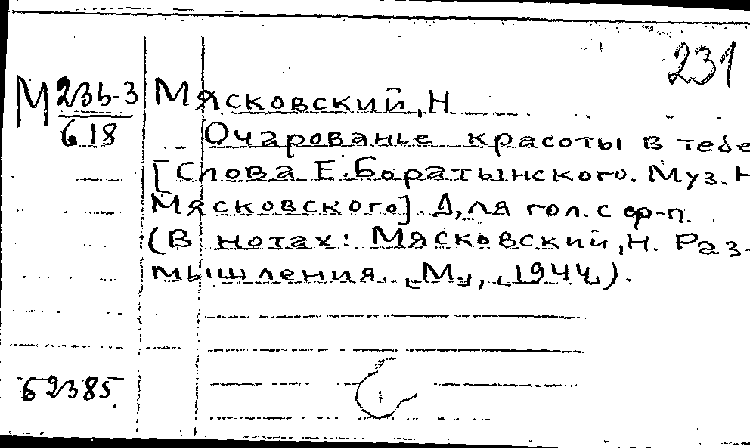 231
М 23б-3 Мясковский, Н
618 Очарованье красоты в тебе
[Слова Е. Боратынского. Муз. Н
Мясковского]. Для гол. с ф-п.
(В нотах: Мясковский, Н. Раз-
мышления. М., 1944).
62385